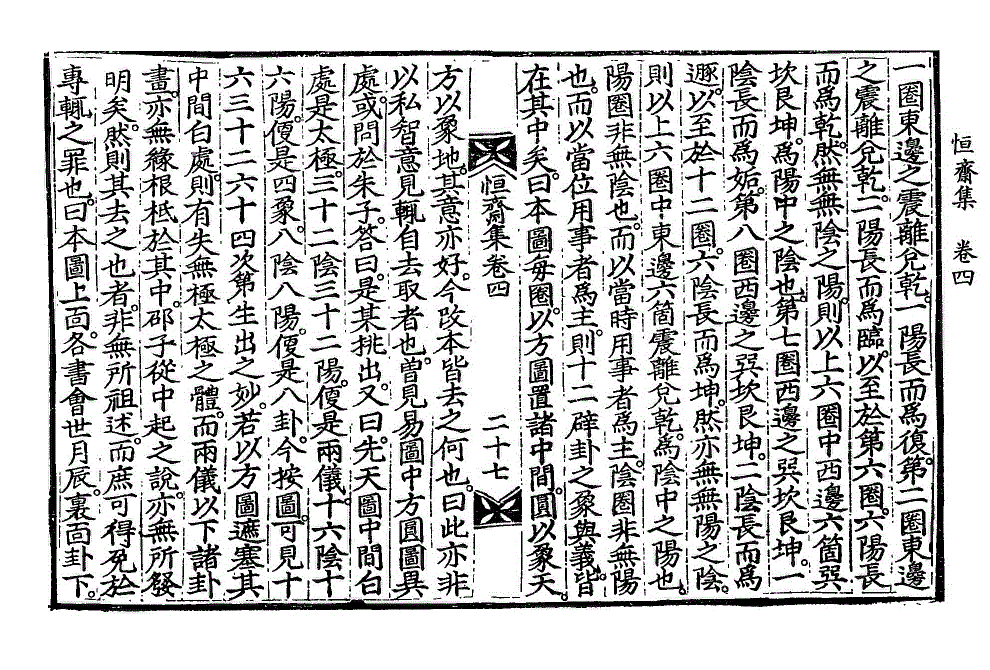 恒齋集　卷四
一圈東邊之震離兌乾。一陽長而爲復。第二圈東邊
之震離兌乾。二陽長而爲臨。以至於第六圈。六陽長
而爲乾。然無無陰之陽。則以上六圈中西邊六箇巽
坎艮坤。爲陽中之陰也。第七圈西邊之巽坎艮坤。一
陰長而爲姤。第八圈西邊之巽坎艮坤。二陰長而爲
遯。以至於十二圈。六陰長而爲坤。然亦無無陽之陰。
則以上六圈中東邊六箇震離兌乾。爲陰中之陽也。
陽圈非無陰也。而以當時用事者爲主。陰圈非無陽
也。而以當位用事者爲主。則十二辟卦之象與義。皆
在其中矣。曰本圖每圈。以方圖置諸中間。圓以象天
恒齋集卷四
二十七
方以象地。其意亦好。今改本皆去之何也。曰此亦非
以私智意見輒自去取者也。曾見易圖中方圓圖具
處。或問於朱子。答曰。是某挑出。又曰。先天圖中間白
處是太極。三十二陰三十二陽。便是兩儀。十六陰十
六陽。便是四象。八陰八陽。便是八卦。今按圖。可見十
六三十二六十四次第生出之妙。若以方圖遮塞其
中間白處。則有失無極太極之體。而兩儀以下諸卦
畫。亦無緣根柢於其中。邵子從中起之說。亦無所發
明矣。然則其去之也者。非無所祖述。而庶可得免於
專輒之罪也。曰本圖上面。各書會世月辰。裏面卦下。